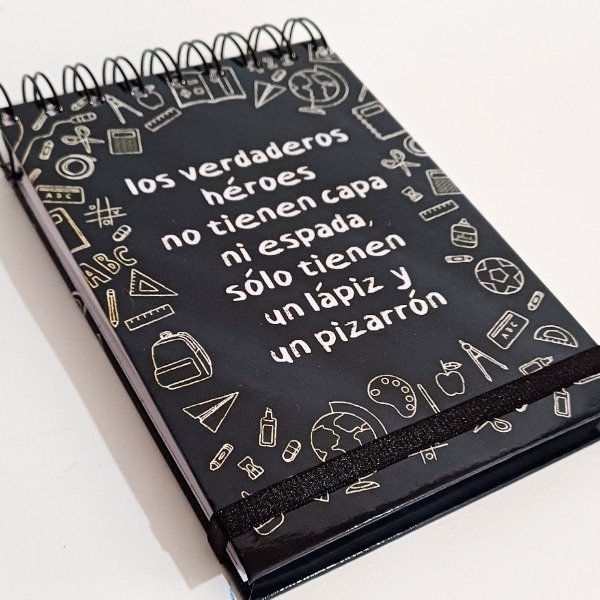 los verdaderos
héroes
no tienen capa
ni espada,
sólo tienen
un lápiz y
un pizarrón
ABC
ABC
ABC